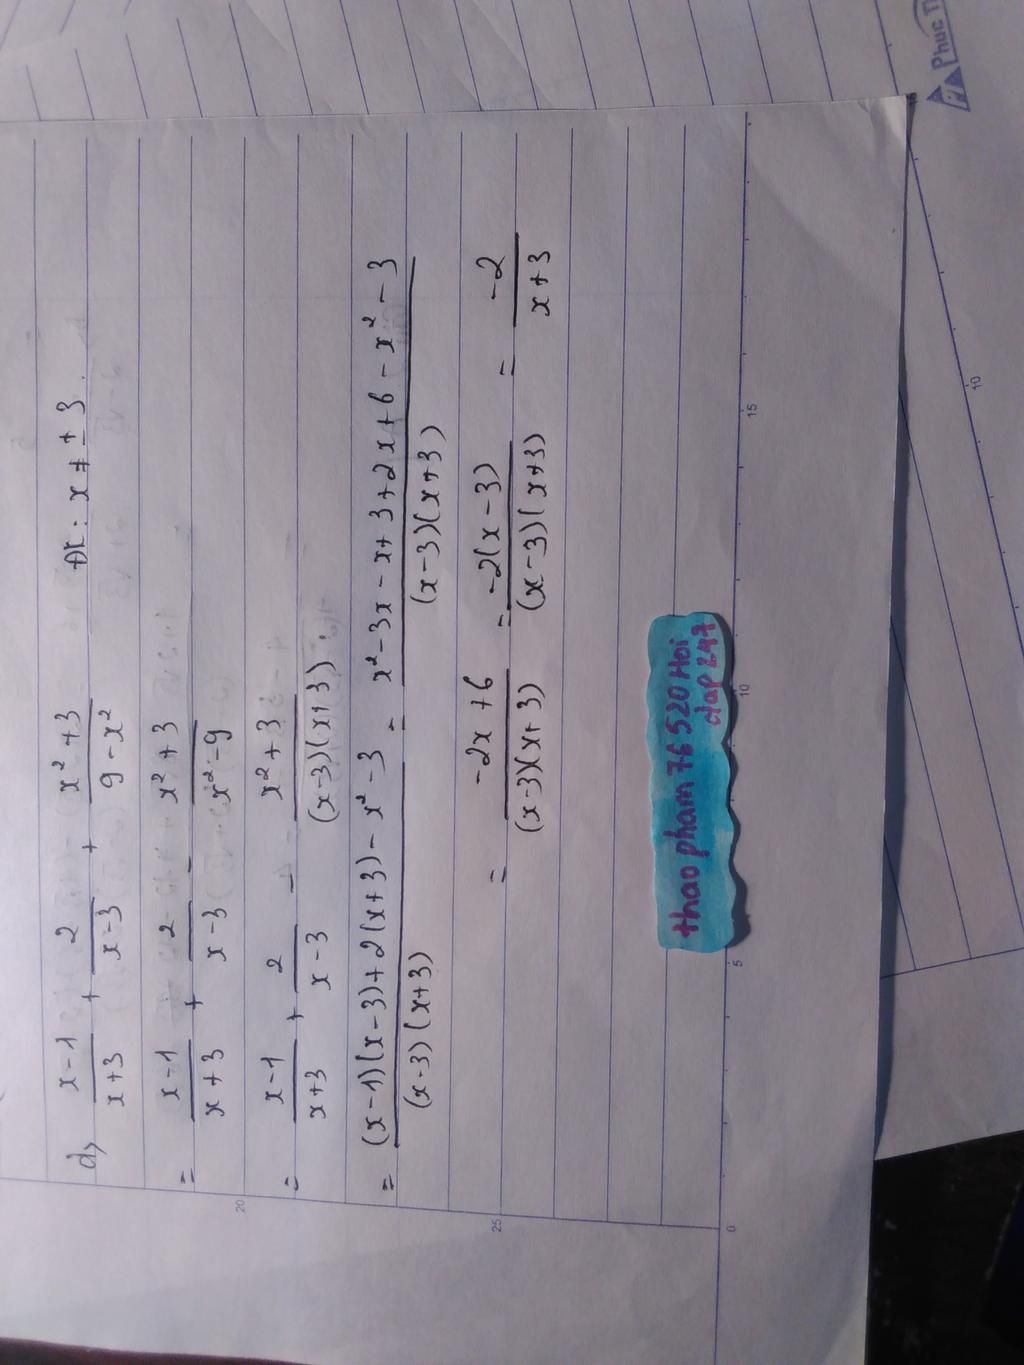 d, x-1/x+3 + 2/x-3 + x²+3/9-x² ĐK: x ≠ ±3.
= x-1/x+3 + 2/x-3 - x²+3/x²-9
= x-1/x+3 + 2/x-3 - x²+3/(x-3)(x+3).
= (x-1)(x-3)+2(x+3)-x²-3/(x-3)(x+3) = x²-3x-x+3+2x+6-x²-3/(x-3)(x+3)
= -2x+6/(x-3)(x+3) = -2(x-3)/(x-3)(x+3) = -2/x+3
thao pham 76520 Hoi
dap 247
20
25
0
5
10
15
10
Phuc T